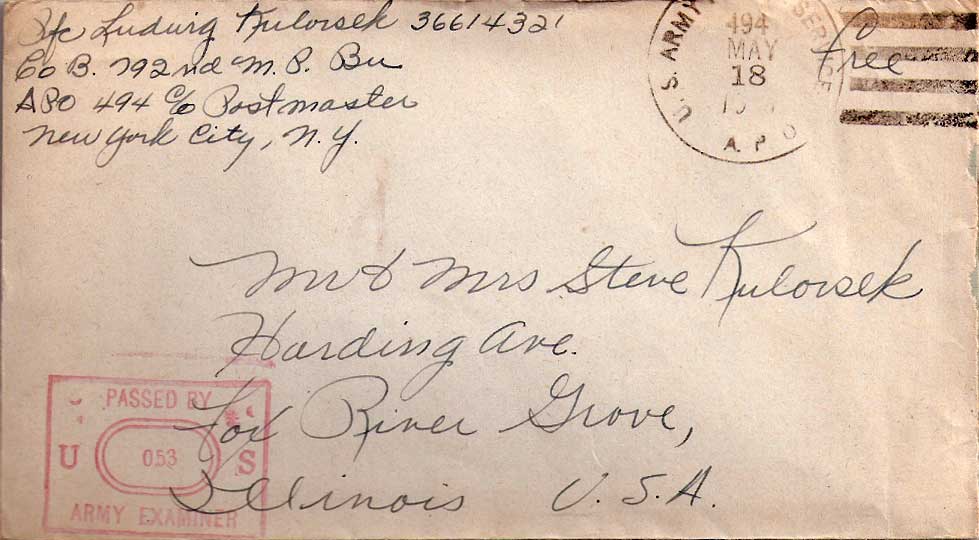 Pfc Ludwig Kulovsek 36614321
Co B. 792nd M. P. Bn
APO 494 c/o Postmaster
New York City, N.Y.
U.S. ARMY
494
MAY
18
A. P. O
Free
Mr & Mrs Steve Kulovsek
Harding Ave.
Fox River Grove,
Illinois U.S.A.
PASSED BY
U 053 S
ARMY EXAMINER